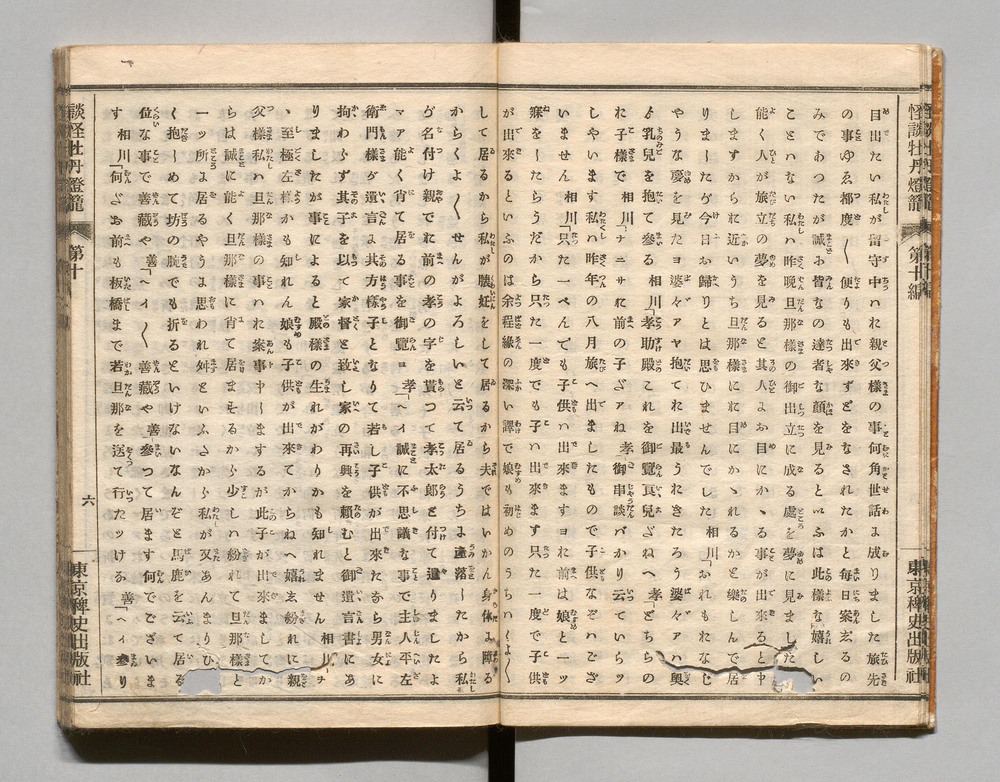 怪談牡丹燈籠
第十編
東京稗史出版社
目出たい私が留守中ハれ親父様の事何角世話よ成りました旅先
の事ゆゑ都度〳〵便りも出來ずどをなされたかと毎日案玄るの
みであつたが誠よ皆なの達者な顔を見るといふは此様な嬉しい
ことハない私ハ昨晩旦那様の御出立に成る處を夢に見ました
能く人が旅立の夢を見ると其人よお目にかゝる事が出來ると申
しますからに近いうち旦那様にれ目にかゝれるかと樂しんで居
りましたゞ今日お歸りとは思ひませんでした 相川「おれもれなじ
やうな夢を見たヨ婆々アヤ抱てれ出最うれきたろう婆々アハ奥
より乳兒を抱て參る 相川「孝助殿これを御覽宜兒ざねへ 孝「どちらの
れ子様で 相川「ナニサれ前の子ざアね 孝「御串談バかり云ていらッ
しやいます私ハ昨年の八月旅へ出ましたもので子供なぞハござ
いません 相川「只た一ぺんでも子供ハ出來ますヨれ前は娘と一ッ
寐をーたらうだから只た一度でも子ハ出來ます只た一度で子供
が出來るといふのは余程縁の深い譯で娘も初めのうちハくよ〳〵
して居るから私が懐妊をして居るから夫ではいかん身体よ障る
からくよ〳〵せんがよろしいと云て居るうちよ產落ーたから私
が名付け親でれ前の孝の字を貰つて孝太郎と付て遣りましたよ
マア能く肖て居る事を御覽ヨ 孝「ヘイ誠に不思議な事で主人平左
衛門様が遺言よ其方様子となりて若し子供が出來たなら男女に
拘わらず其子を以て家督と致し家の再興を頼むと御遺言書にあ
りましたが事によると殿様の生れがわりかも知れません 相川「チ
ゝ至極左様かも知れん娘も子供が出來てからねへ嬉玄紛れに親
父様私ハ旦那様の事ハれ案事申ーまするが此子が出來ましてか
らは誠に能く旦那様に肖て居ますから少しハ紛れて旦那様と
一ッ所よ居るやうよ思われ舛といふさから私が又あんまりひど
く抱ーめて坊の腕でも折るといけないなんぞと馬鹿を云て居る
位な事で善藏や 善「ヘイ〳〵 善藏や 善「參つて居ます何でございま
す 相川「何ざお前も板橋まで若旦那を送て行たッけゑ 善「ヘイ參り
談怪牡丹燈籠
第十
六
東京稗史出版社